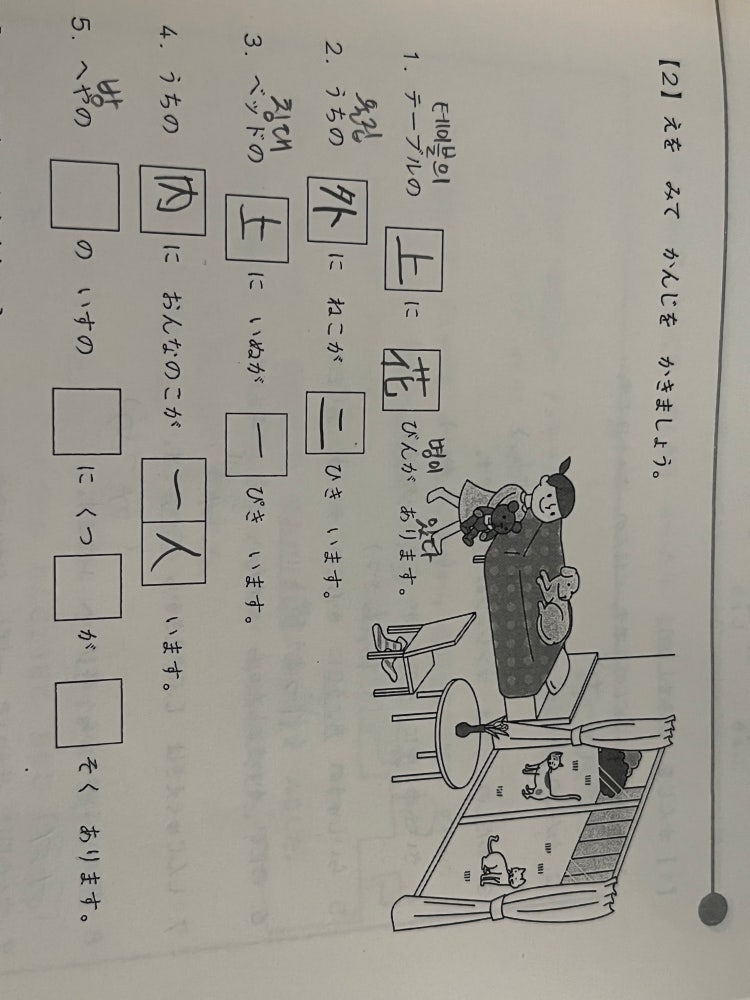 【2】 えを みて かんじを かきましょう。
테이블의 병이 있다
1. テーブルの 上 に 花 びんが あります。
2. うちの 外 に ねこが 二 ひき います。
침대
3. ベッドの 上 に いぬが 一 ぴき います。
4. うちの 内 に おんなのこが 一人 います。
방
5. へやの の いすの に くつ が そく あります。